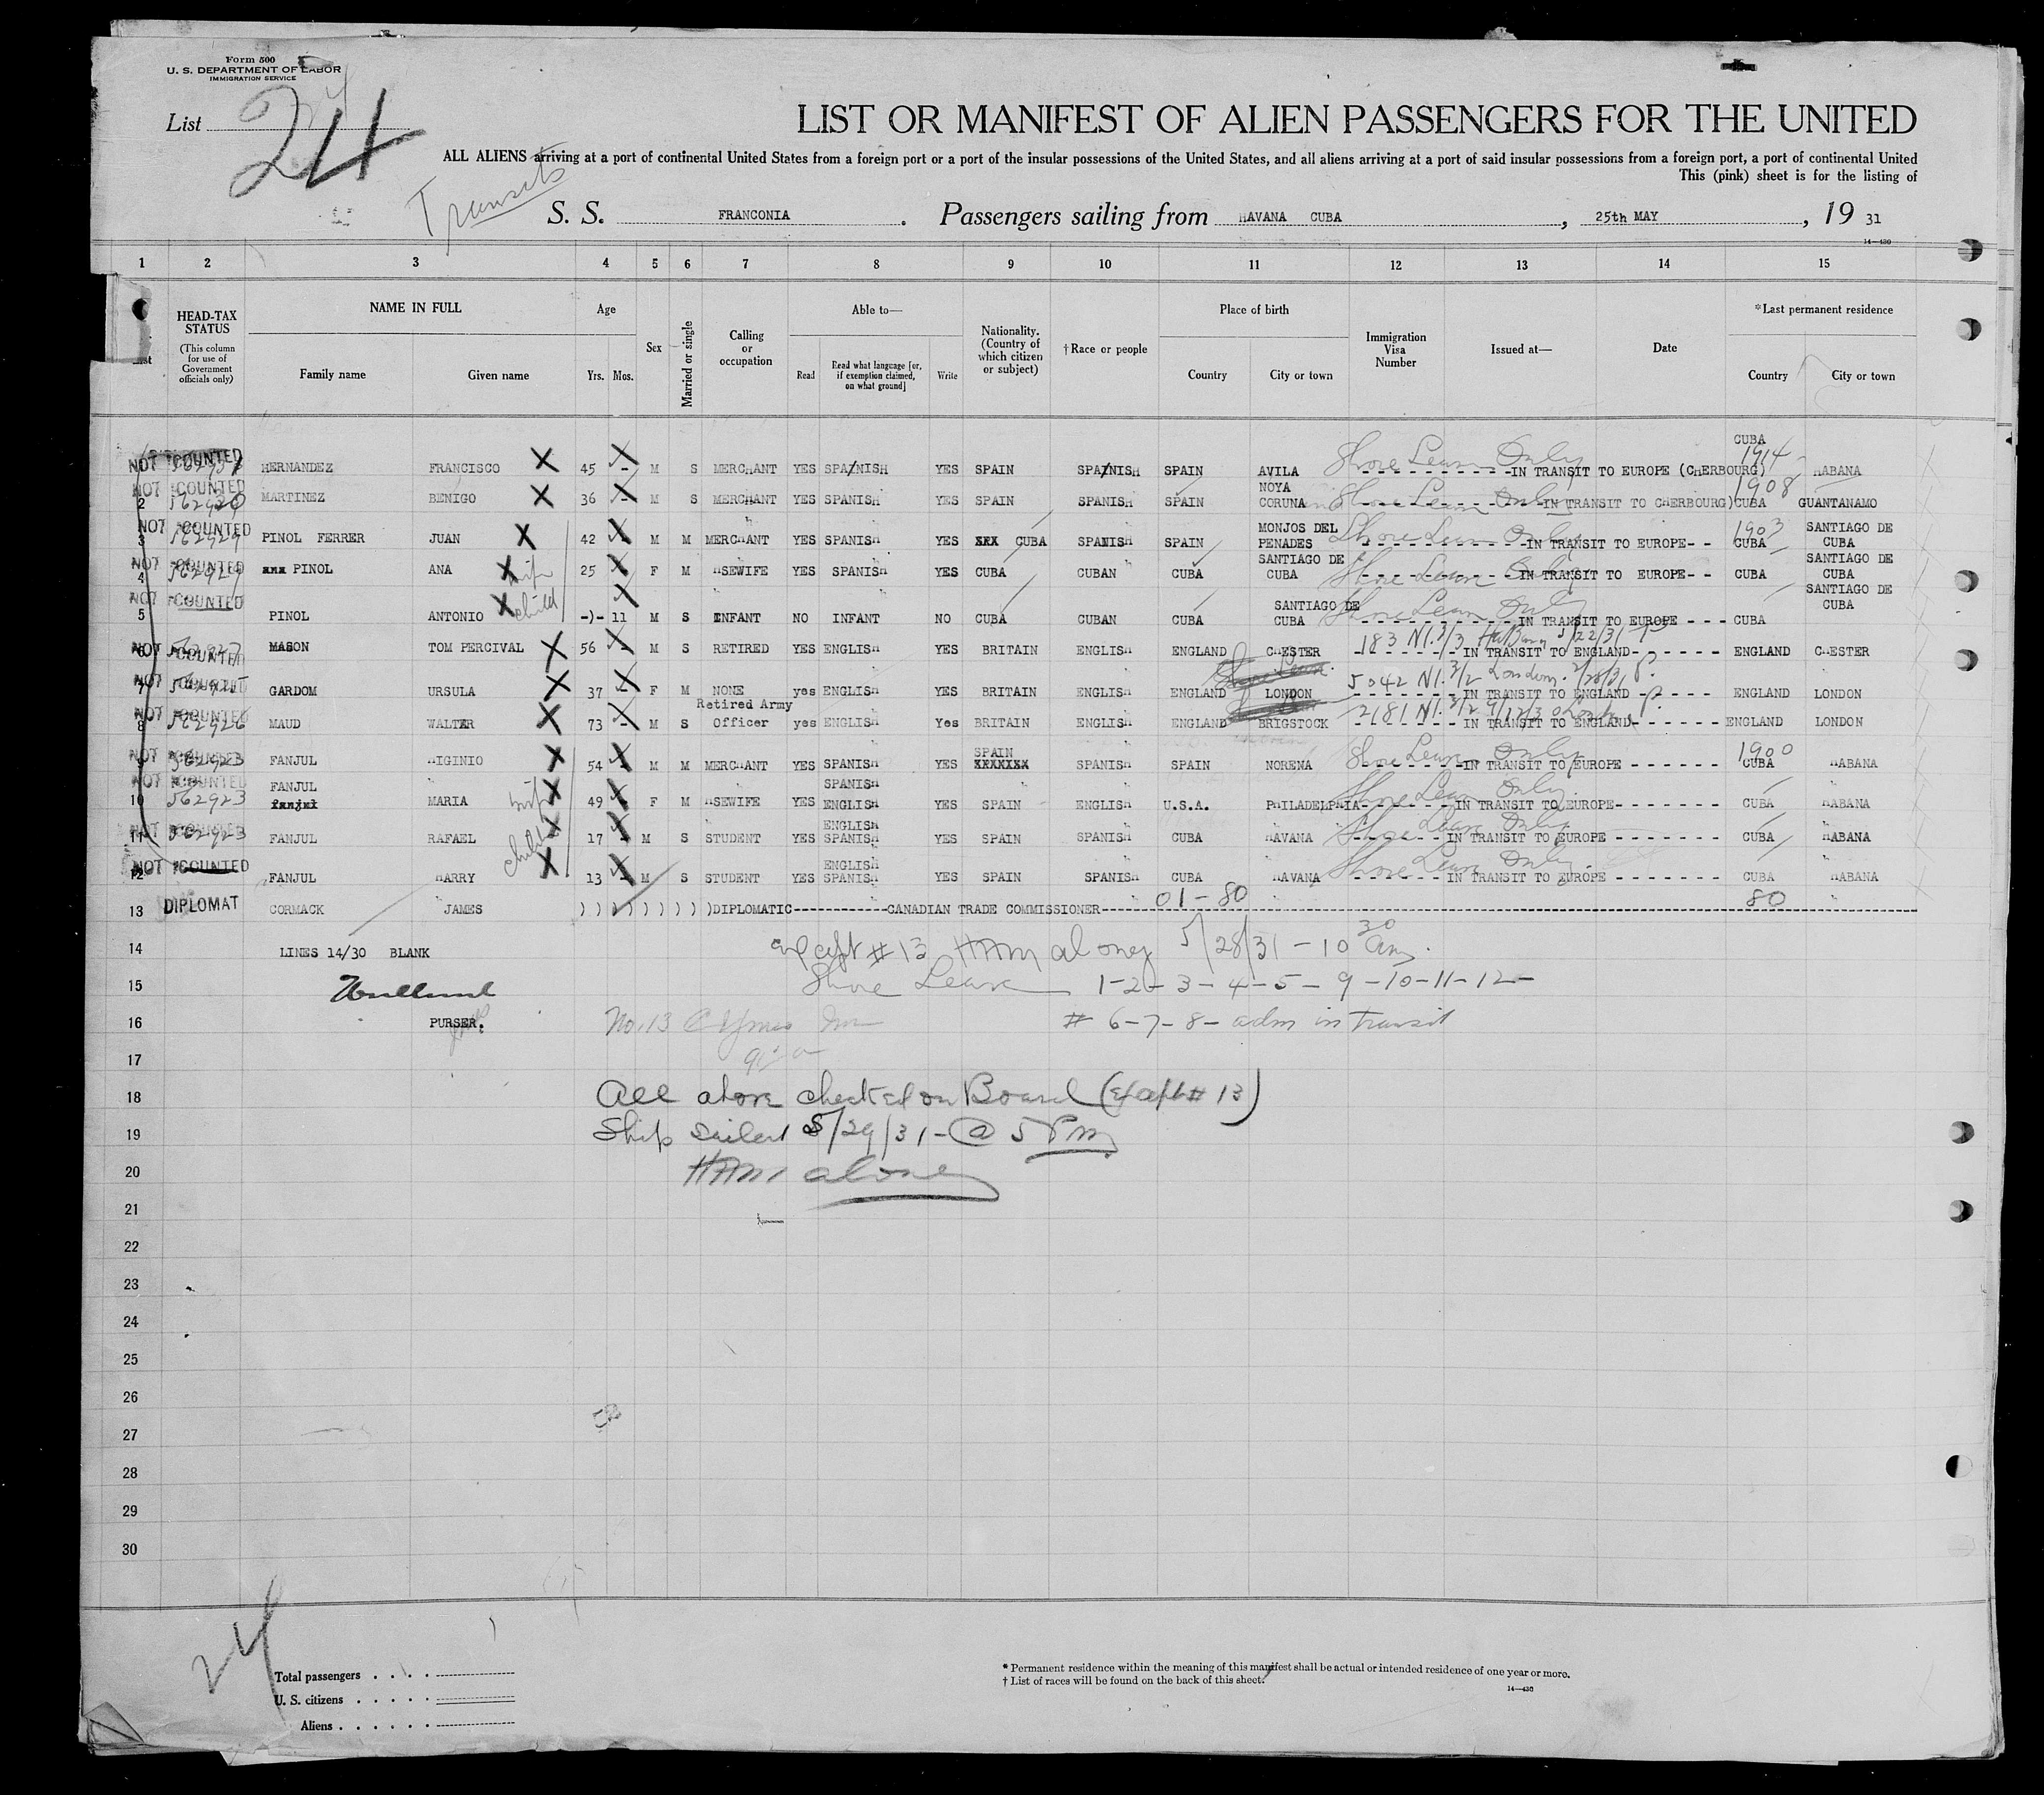 Form 500
U. S. DEPARTMENT OF LABOR
IMMIGRATION SERVICE
List 24
LIST OR MANIFEST OF ALIEN PASSENGERS FOR THE UNITED
ALL ALIENS arriving at a port of continental United States from a foreign port or a port of the insular possessions of the United States, and all aliens arriving at a port of said insular possessions from a foreign port, a port of continental United
This (pink) sheet is for the listing of
Transits
S. S. FRANCONIA. Passengers sailing from HAVANA CUBA, 25th MAY, 19 31
14—430
1 2 3 4 5 6 7 8 9 10 11 12 13 14 15
HEAD-TAX STATUS (This column for use of Government officials only) NAME IN FULL Family name Given name Age Yrs. Mos. Sex Married or single Calling or occupation Able to— Read Read what language [or, if exemption claimed, on what ground] Write Nationality. (Country of which citizen or subject) †Race or people Place of birth Country City or town Immigration Visa Number Issued at— Date *Last permanent residence Country City or town
NOT COUNTED HERNANDEZ FRANCISCO X 45 - M S MERCHANT YES SPANISH YES SPAIN SPANISH SPAIN AVILA Shore Leave Only IN TRANSIT TO EUROPE (CHERBOURG) CUBA 1914 HABANA
NOT COUNTED 2 MARTINEZ BENIGO X 36 - M S MERCHANT YES SPANISH YES SPAIN SPANISH SPAIN NOYA CORUNA Shore Leave Only IN TRANSIT TO CHERBOURG) 1908 CUBA GUANTANAMO
NOT COUNTED 3 562929 PINOL FERRER JUAN X 42 M M MERCHANT YES SPANISH YES XXX CUBA SPANISH SPAIN MONJOS DEL PENADES Shore Leave Only IN TRANSIT TO EUROPE-- 1903 CUBA SANTIAGO DE CUBA
NOT COUNTED 4 562929 xxx PINOL ANA X wife 25 F M HSEWIFE YES SPANISH YES CUBA CUBAN CUBA SANTIAGO DE CUBA Shore Leave Only IN TRANSIT TO EUROPE-- CUBA SANTIAGO DE CUBA
NOT COUNTED 5 PINOL ANTONIO X child -)- 11 M S INFANT NO INFANT NO CUBA CUBAN CUBA SANTIAGO DE CUBA Shore Leave Only IN TRANSIT TO EUROPE --- CUBA SANTIAGO DE CUBA
NOT COUNTED 6 562927 MASON TOM PERCIVAL X 56 - M S RETIRED YES ENGLISH YES BRITAIN ENGLISH ENGLAND CHESTER 183 5/22/31 IN TRANSIT TO ENGLAND------- ENGLAND CHESTER
NOT COUNTED 7 562925 GARDOM URSULA X 37 - F M NONE yes ENGLISH YES BRITAIN ENGLISH ENGLAND LONDON 5042 London. 2/28/31 IN TRANSIT TO ENGLAND ----- ENGLAND LONDON
NOT COUNTED 8 562926 MAUD WALTER X 73 - M S Retired Army Officer yes ENGLISH Yes BRITAIN ENGLISH ENGLAND BRIGSTOCK 2181 IN TRANSIT TO ENGLAND------- ENGLAND LONDON
NOT COUNTED 9 562923 FANJUL HIGINIO X 54 - M M MERCHANT YES SPANISH YES SPAIN XXXXXXX SPANISH SPAIN NORENA Shore Leave Only IN TRANSIT TO EUROPE ------ 1900 CUBA HABANA
NOT COUNTED 10 562923 FANJUL fanjul MARIA wife X 49 F M HSEWIFE YES SPANISH ENGLISH YES SPAIN ENGLISH U.S.A. PHILADELPHIA Shore Leave Only IN TRANSIT TO EUROPE------- CUBA HABANA
NOT COUNTED 11 562923 FANJUL RAFAEL X 17 - M S STUDENT YES ENGLISH SPANISH YES SPAIN SPANISH CUBA HAVANA Shore Leave Only IN TRANSIT TO EUROPE ------- CUBA HABANA
NOT COUNTED 12 FANJUL HARRY X 13 - M S STUDENT YES ENGLISH SPANISH YES SPAIN SPANISH CUBA HAVANA Shore Leave Only IN TRANSIT TO EUROPE ------- CUBA HABANA
13 DIPLOMAT CORMACK JAMES ) ) ) ) ) ) ) ) )DIPLOMATIC------------CANADIAN TRADE COMMISSIONER--- 01-80 80
14 LINES 14/30 BLANK except #13 HAMaloney 5/28/31 - 10 30 am.
15 Shore Leave 1-2-3-4-5-9-10-11-12-
16 PURSER. No. 13 # 6-7-8- adm in transit
17
18 All above checked on Board (except # 13)
19 Ship sailed 5/29/31 - @ 5 PM
20 HAMaloney
21
22
23
24
25
26
27
28
29
30
24
Total passengers . . . .
U. S. citizens . . . . .
Aliens . . . . . .
* Permanent residence within the meaning of this manifest shall be actual or intended residence of one year or more.
† List of races will be found on the back of this sheet.
14—430